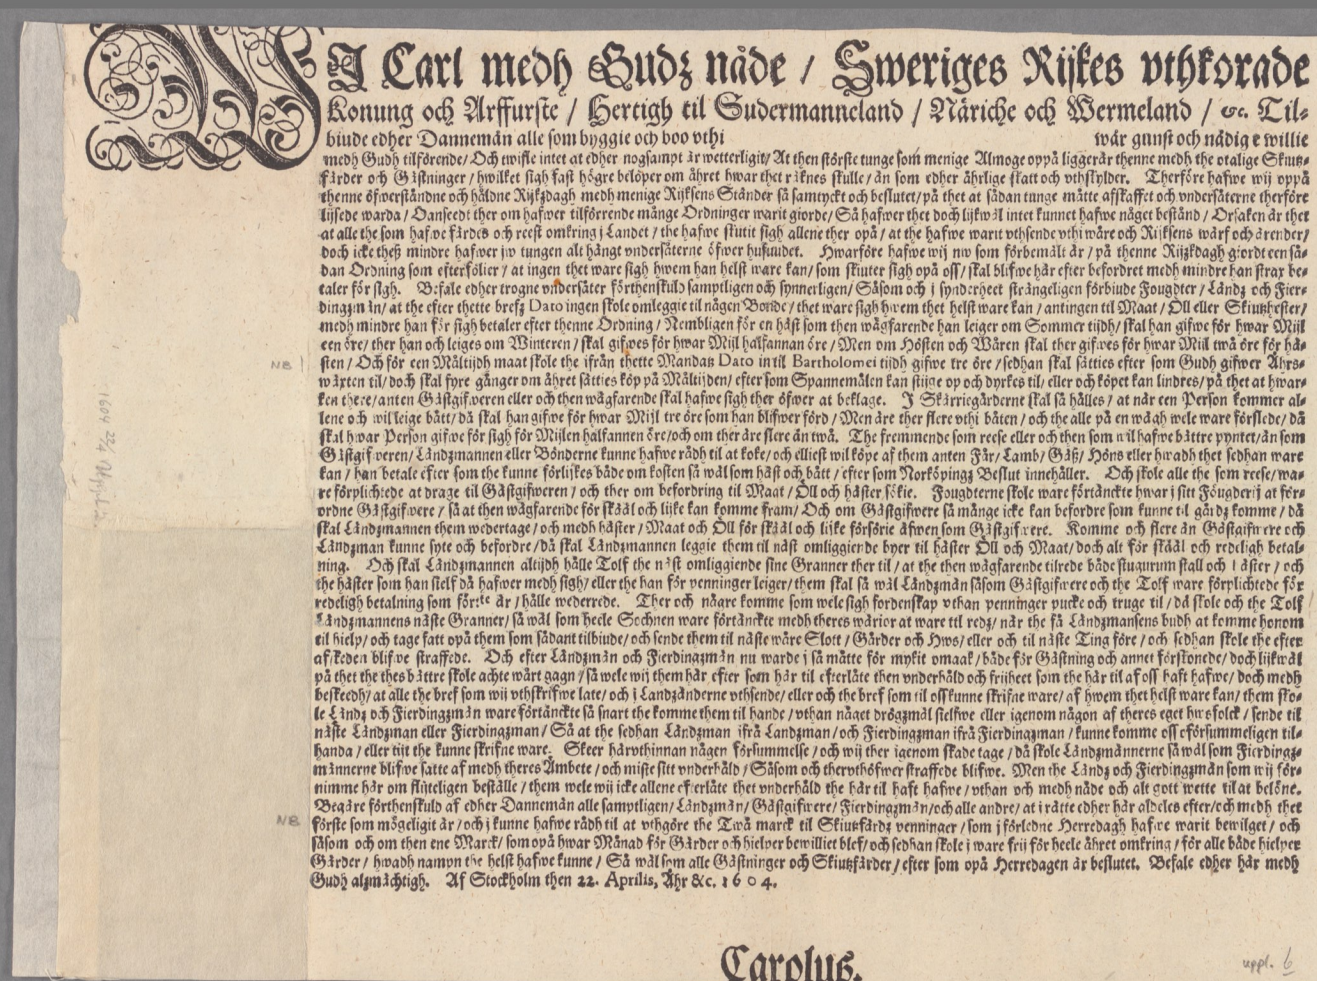 WJ Carl medh Gudz nåde / Sweriges Rijkes vthkorade
Konung och Arffurste / Hertigh til Sudermanneland / Näriche och Wermeland / &c. Til-
biude edher Dannemän alle som byggie och boo vthi wår gunst och nådige willie
medh Gudh tilförende / Och twifle intet at edher nogsampt är wetterligit / At then störste tunge som menige Almoge oppå ligger är thenne medh the otalige Skiutz-
färder och Gästninger / hwilket sigh fast högre belöper om åhret hwar thet räknes skulle / än som edher åhrlige skatt och vthskylder. Therföre hafwe wij oppå
thenne öfwerståndne och håldne Rijkzdagh medh menige Rijksens Ständer så samtyckt och beslutet / på thet at sådan tunge måtte afskaffet och vndersåterne therföre
lijsede warda / Oanseedt ther om hafwer tilförrende månge Ordninger warit giorde / Så hafwer thet doch lijkwäl intet kunnet hafwe något bestånd / Orsaken är thet
at alle the som hafwe färdes och reest omkring j Landet / the hafwe skutit sigh allene ther opå / at the hafwe warit vthsende vthi wåre och Rijksens wärf och ärender /
doch icke theß mindre hafwer jw tungen alt hängt vndersåterne öfwer hufwudet. Hwarföre hafwe wij nw som förbemält är / på thenne Rijkzdagh giordt een så-
dan Ordning som efterfölier / at ingen thet ware sigh hwem han helst ware kan / som skiuter sigh opå oss / skal blifwe här efter befordret medh mindre han strax be-
taler för sigh. Befale edher trogne vndersåter förthenskuld samptligen och synnerligen / Såsom och j synderheet strängeligen förbiude Fougdter / Ländz och Fier-
dingzmän / at the efter thette brefz Dato ingen skole omleggie til någen Bonde / thet ware sigh hwem thet helst ware kan / antingen til Maat / Öll eller Skiutzhester /
medh mindre han för sigh betaler efter thenne Ordning / Nembligen för en häst som then wägfarende han leiger om Sommer tijdh / skal han gifwe för hwar Mijl
een öre / ther han och leiges om Winteren / skal gifwes för hwar Mijl halfannan öre / Men om Hösten och Wåren skal ther gifwes för hwar Mijl twå öre för hä-
NB
sten / Och för een Måltijdh maat skole the ifrån thette Mandatz Dato in til Bartholomei tijdh gifwe tre öre / sedhan skal sätties efter som Gudh gifwer Åhrs-
wäxten til / doch skal fyre gånger om åhret sätties köp på Måltijden / efter som Spannemålen kan stijge op och dyrkes til / eller och köpet kan lindres / på thet at hwar-
ken there / anten Gästgifweren eller och then wägfarende skal hafwe sigh ther öfwer at beklage. J Skärriegårderne skal så hålles / at när een Person kommer al-
lene och wil leige båtr / då skal han gifwe för hwar Mijl tre öre som han blifwer förd / Men äre ther flere vthi båten / och the alle på en wägh wele ware förslede / då
skal hwar Person gifwe för sigh för Mijlen halfannen öre / och om ther äre flere än twå. The fremmende som reese eller och then som wil hafwe bättre pyntet / än som
Gästgifweren / Ländzmannen eller Bönderne kunne hafwe rådh til at koke / och elliest wil köpe af them anten Får / Lamb / Gäß / Höns eller hwadh thet sedhan ware
kan / han betale efter som the kunne förlijkes både om kosten så wäl som häst och båtr / efter som Norköpingz Beslut innehåller. Och skole alle the som reese / wa-
re förplichtede at drage til Gästgifweren / och ther om befordring til Maat / Öll och häster sökie. Fougdterne skole ware förtänckte hwar j sitt Föugderij at för-
ordne Gästgifwere / så at then wägfarende för skääl och lijke kan komme fram / Och om Gästgifwere så månge icke kan befordre som kunne til gårdz komme / då
skal Ländzmannen them wedertage / och medh häster / Maat och Öll för skääl och lijke försörie äfwen som Gästgifwere. Komme och flere än Gästgifwere och
Ländzman kunne syte och befordre / då skal Ländzmannen leggie them til näst omliggiende byer til häster Öll och Maat / doch alt för skääl och redeligh betal-
ning. Och skal Ländzmannen altijdh hålle Tolf the näst omliggiende sine Granner ther til / at the then wägfarende tilrede både stugurum stall och häster / och
the häster som han sielf då hafwer medh sigh / eller the han för penninger leiger / them skal så wäl Ländzmän såsom Gästgifwere och the Tolf ware förplichtede för
redeligh betalning som för:te är / hålle wederrede. Ther och någre komme som wele sigh fordenskap vthan penninger pucke och truge til / då skole och the Tolf
Ländzmannens näste Granner / så wäl som heele Sochnen ware förtänckte medh theres wärior at ware til redz / när the få Ländmansens budh at komme honom
til hielp / och tage fatt opå them som sådant tilbiude / och sende them til näste wåre Slott / Gårder och Hws / eller och til näste Ting före / och sedhan skole the efter
afskeden blifwe straffede. Och efter Ländzmän och Fierdingzmän nu warde j så måtte för mykit omaak / både för Gästning och annet förskonede / doch lijkwäl
på thet the thes bättre skole achte wårt gagn / så wele wij them här efter som här til efterlåte then vnderhåld och frijheet som the här til af oss haft hafwe / doch medh
beskeedh / at alle the bref som wij vthskrifwe late / och j Landzänderne vthsende / eller och the bref som til oss kunne skrifne ware / af hwem thet helst ware kan / them sko-
le Ländz och Fierdingzmän ware förtänckte så snart the komme them til hande / vthan något drögzmål sielfwe eller igenom någon af theres eget hwsfolck / sende til
näste Ländzman eller Fierdingzman / Så at the sedhan Ländzman ifrå Landzman / och Fierdingzman ifrå Fierdingzman / kunne komme oss eförsummeligen til-
handa / eller tiit the kunne skrifne ware. Skeer härvthinnan någen försummelse / och wij ther igenom skade tage / då skole Ländzmännerne så wäl som Fierdingz-
männerne blifwe satte af medh theres Ämbete / och miste sitt vnderhåld / Såsom och thervthöfwer straffede blifwe. Men the Ländz och Fierdingzmän som wij för-
nimme här om flijteligen beställe / them wele wij icke allene efterlåte thet vnderhåld the här til haft hafwe / vthan och medh nåde och alt gott wette til at belöne.
Begäre förthenskuld af edher Dannemän alle samptligen / Ländzmän / Gästgifwere / Fierdingzmän / och alle andre / at i rätte edher här aldeles efter / och medh thet
NB
förste som mögeligit är / och j kunne hafwe rådh til at vthgöre the Twå marck til Skiutzfärdz penninger / som j förledne Herredagh hafwe warit bewilget / och
såsom och om then ene Marck / som opå hwar Månad för Gärder och hielper bewilliet blef / och sedhan skole j ware frij för heele åhret omkring / för alle både hielper
Gärder / hwadh nampn the helst hafwe kunne / Så wäl som alle Gästninger och Skiutzfärder / efter som opå Herredagen är beslutet. Befale edher här medh
Gudh alzmächtigh. Af Stockholm then 22. Aprilis, Åhr &c. 1604.
Carolus.
1604 22/4 Uppl. 2.
uppl. 6